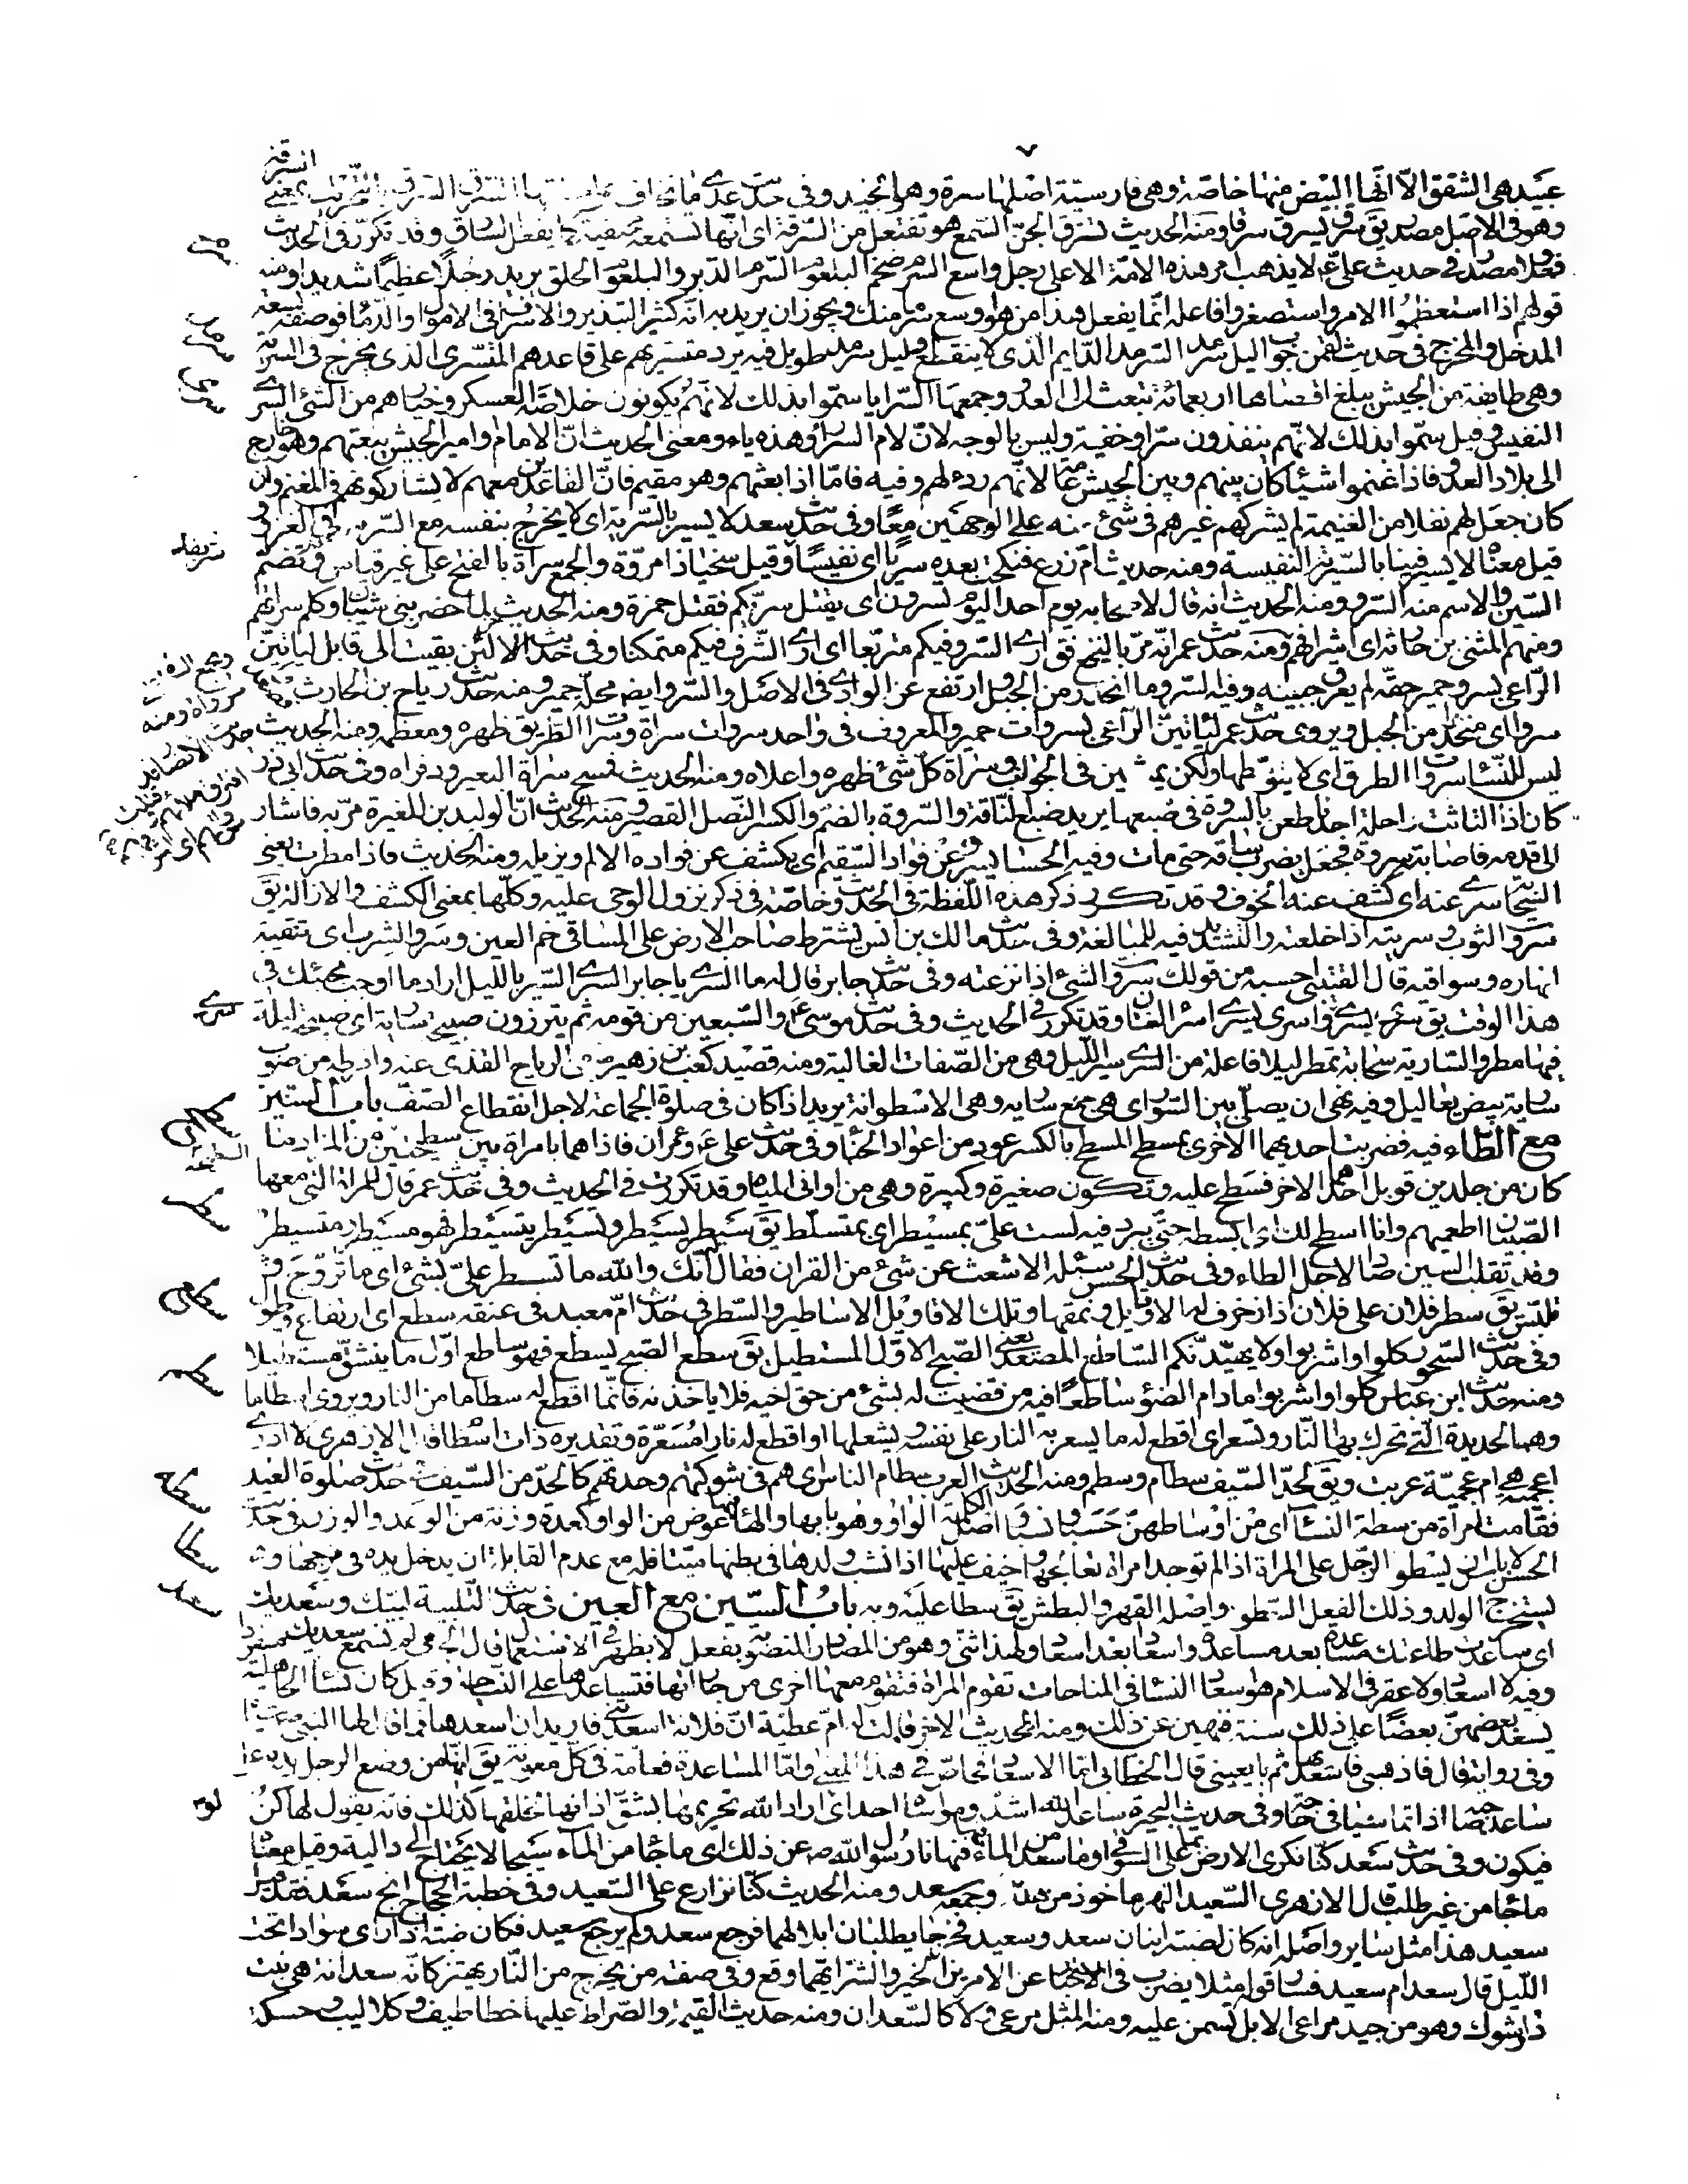 عبيد هى الشقق الا انها البيض منها خاصة وهى فارسية اصلها سرة وهو الجيد وفى حدث عدى ما نخاف على السرق السرق بالتحريك بمعنى السرقة
وهو فى الاصل مصدر يق سرق يسرق سرقا ومنه الحديث تسترق الجن السمع هو تفتعل من السرقة اى انها تستمعه مختفية كما يفعل السارق وقد تكرر فى الحديث
فعلا ومصدرا فى حديث على ع لا يذهب امر هذه الامة الا على رجل واسع السرم ضخم البلعوم السرم الدبر والبلعوم الحلق يريد رجلا عظيما شديدا ومنه
قولهم اذا استعظموا الامر واستصغروا فاعله انما يفعل هذا من هو اوسع سرما منك ويجوز ان يريد به انه كثير التبذير والاسراف فى الاموال والدماء فوصفه بسعة
المدخل والمخرج فى حديث لقمن جواب ليل سرمد السرمد الدايم الذى لا ينقطع وليل سرمد طويل فيه يرد متسريهم على قاعدهم المتسرى الذى يخرج فى السرية
وهى طايفة من الجيش يبلغ اقصاها اربعمائة تبعث الى العدو وجمعها السرايا سموا بذلك لانهم يكونون خلاصة العسكر وخيارهم من الشئ السرى
النفيس وقيل سموا بذلك لانهم ينفذون سرا وخفية وليس بالوجه لان لام السر راء وهذه ياء ومعنى الحديث ان الامام او امير الجيش يبعثهم وهو خارج
الى بلاد العدو فاذا غنموا شيئا كان بينهم وبين الجيش عامة لانهم ردء لهم وفيه فاما اذا بعثهم وهو مقيم فان القاعدين معهم لا يشاركونهم فى المغنم وان
كان جعل لهم نفلا من الغنيمة لم يشركهم غيرهم فى شئ منه على الوجهين معا وفى حدث سعد لا يسير بالسرية اى لا يخرج بنفسه مع السرية فى الغزو و
قيل معناه لا يسير فينا بالسيرة النفيسة ومنه حديث ام زرع فنكحت بعده سريا اى نفيسا وقيل سخيا ذا مروة والجمع سراة بالفتح على غير قياس وقد تضم
السين والاسم منه السرو ومنه الحديث انه قال لاصحابه يوم احد اليوم تسرون اى يقتل سريكم فقتل حمزة ومنه الحديث لما حضر بنى شيبان وكلم سراتهم
ومنهم المثنى بن حارثة اى اشرافهم ومنه حدث عمر انه مر بالنخع فقال ارى السرو فيكم متربعا اى ارى الشرف فيكم متمكنا وفى حدثه الاخر لئن بقيت الى قابل لياتين
الراعى بسرو حمير حقه لم يعرق جبينه فيه السرو ما انحدر من الجبل وارتفع عن الوادى فى الاصل والسرو ايض محلة حمير ومنه حدث رياح بن الحارث
سروا اى منحدرا من الجبل ويروى حدث عمر لياتين الراعى بسروات حمير والمعروف فى واحد سروات سراة وسراة الطريق ظهره ومعظمه ومنه الحديث
ليس للنساء سروات الطرق اى لا يتوسطنها ولكن يمشين فى الجوانب وسراة كل شئ ظهره واعلاه ومنه الحديث فمسح سراة البعير وذفراه وفى حدث ابى ذر
كان اذا التاثت راحلة احدنا طعن بالسروة فى ضبعها يريد ضبع الناقة والسروة بالضم والكسر النصل القصير ومنه الحديث ان الوليد بن المغيرة مر به فاشار
الى قدمه فاصابته سروة فجعل يضرب ساقه حتى مات وفيه الحسا يسرو عن فواد السقيم اى يكشف عن فواده الالم ويزيله ومنه الحديث فاذا مطرت يعنى
السحابة سرى عنه اى كشف عنه الخوف وقد تكرر ذكر هذه اللفظة فى الحدث وخاصة فى ذكر نزول الوحى عليه وكلها بمعنى الكشف والازالة يق
سروت الثوب وسريته اذا خلعته والتشديد فيه للمبالغة وفى حدث مالك بن انس يشترط صاحب الارض على المساقى خم العين وسرو الشرب اى تنقية
انهاره وسواقيه قال القتيبى احسبه من قولك سروت الشئ اذا نزعته وفى حدث جابر قال له ما السرى يا جابر السرى السير بالليل اراد ما اوجب مجيئك فى
هذا الوقت يق سرى يسرى سرى واسرى يسرى اسراء لغتان وقد تكرر فى الحديث وفى حدث موسى ع والسبعين من قومه ثم يبرزون صبيحة سارية اى صبيحة ليلة
فيها مطر والسارية سحابة تمطر ليلا فاعلة من السرى سير الليل وهى من الصفات الغالبة ومنه قصيد كعب بن زهير تنفى الرياح القذى عنه وافرطه من صوب
سارية بيض يعاليل وفيه نهى ان يصلى بين السوارى هى جمع سارية وهى الاسطوانة يريد اذا كان فى صلوة الجماعة لاجل انقطاع الصف باب السين
مع الطاء فيه فضربت احديهما الاخرى بمسطح المسطح بالكسر عود من اعواد الخباء وفى حدث على ع وعمران فاذا هما بامراة بين سطيحتين السطيحة من المزاد ما
كان من جلدين قوبل احدهما الاخر فسطح عليه وتكون صغيرة وكبيرة وهى من اوانى المياه وقد تكررت فى الحديث وفى حدث عمر قال للمراة التى معها
الصبيان اطعميهم وانا اسطح لك اى ابسطه حتى يبرد فيه لست على بمسيطر اى بمتسلط يق سيطر يسيطر وتسيطر يتسيطر فهو مسيطر ومتسيطر
وقد تقلب السين صادا لاجل الطاء وفى حدث الحسن سئله الاشعث عن شئ من القران فقال له انك والله ما تسطر على بشئ اى ما تروج و
تلبس يق سطر فلان على فلان اذا زخرف له الاقاويل ونمقها وتلك الاقاويل الاساطير والسطر فى حدث ام معبد فى عنقه سطع اى ارتفاع وطول
وفى حدث السحور كلوا واشربوا ولا يهيدنكم الساطع المصعد يعنى الصبح الاول المستطيل يق سطع الصبح يسطع فهو ساطع اول ما ينشق مستطيلا
ومنه حدث ابن عباس كلوا واشربوا ما دام الضوء ساطعا فيه من قضيت له بشئ من حق اخيه فلا ياخذنه فانما اقطع له سطاما من النار ويروى اسطاما
وهما الحديدة التى تحرك بها النار وتسعر اى اقطع له ما يسعر به النار على نفسه ويشعلها او اقطع له نارا مسعرة وتقديره ذات اسطام قال الازهرى لا ادرى
اعجمية هى ام عجمية عربت ويق لحد السيف سطام وسطم ومنه الحديث العرب سطام الناس اى هم فى شوكتهم وحدتهم كالحد من السيف فى حدث صلوة العيد
فقامت امراة من سطة النساء اى من اوساطهن حسبا ونسبا واصل الكلمة الواو وهو بابها والهاء فيها عوض من الواو كعدة وزنة من الوعد والوزن فى حدث
الحسن لا باس ان يسطو الرجل على المراة اذا لم توجد امراة تعالجها وخيف عليها اذا نشب ولدها فى بطنها ميتا فله مع عدم القابلة ان يدخل يده فى فرجها و
يستخرج الولد وذلك الفعل السطو واصله القهر والبطش يق سطا عليه وبه باب السين مع العين فى حدث التلبية لبيك وسعديك
اى ساعدت طاعتك مساعدة بعد مساعدة واسعادا بعد اسعاد ولهذا ثنى وهو من المصادر المنصوبة بفعل لا يظهر فى الاستعمال قال الجرمى لم نسمع سعديك مفردا
وفيه لا اسعاد ولا عقر فى الاسلام هو اسعاد النساء فى المناحات تقوم المراة فتقوم معها اخرى من جاراتها فتساعدها على النياحة وقيل كان نساء الجاهلية
يسعد بعضهن بعضا على ذلك سنة فنهين عن ذلك ومنه الحديث الاخر قالت له ام عطية ان فلانة اسعدتنى فاريد ان اسعدها فما قال لها النبى شيئا
وفى رواية قال فاذهبى فاسعديها ثم بايعينى قال الخطابى اما الاسعاد فخاص فى هذا المعنى واما المساعدة فعامة فى كل معونة يق انها من وضع الرجل يده على
ساعد صاحبه اذا تماشيا فى حاجة وفى حديث البحيرة ساعد الله اشد وموساه احد اى لو اراد الله تحريمها بشق اذانها لخلقها كذلك فانه يقول لها كن
فيكون وفى حدث سعد كنا نكرى الارض بما على السواقى وما سعد من الماء فيها فنهانا رسول الله ص عن ذلك اى ما جاء من الماء سيحا لا يحتاج الى دالية وقيل معناه
ما جاء من غير طلب قال الازهرى السعيد النهر ماخوذ من هذا وجمعه سعد ومنه الحديث كنا نزارع على السعيد وفى خطبة الحجاج انج سعد فقد قتل
سعيد هذا مثل ساير واصله انه كان لضبة ابنان سعد وسعيد فخرجا يطلبان ابلا لهما فرجع سعد ولم يرجع سعيد فكان ضبة اذا راى سوادا تحت
الليل قال سعد ام سعيد فسار قوله مثلا يضرب فى الاخبار عن الامرين الخير والشر ايهما وقع وفى صفة من يخرج من النار يهتز كانه سعدانة هى نبت
ذو شوك وهو من جيد مراعى الابل تسمن عليه ومنه المثل مرعى ولا كالسعدان ومنه حديث القيمة والصراط عليها خطاطيف وكلاليب وحسكة
سرم
سرمد
سرى
سطح
سطر
سطع
سطم
سطة
سطا
سعد